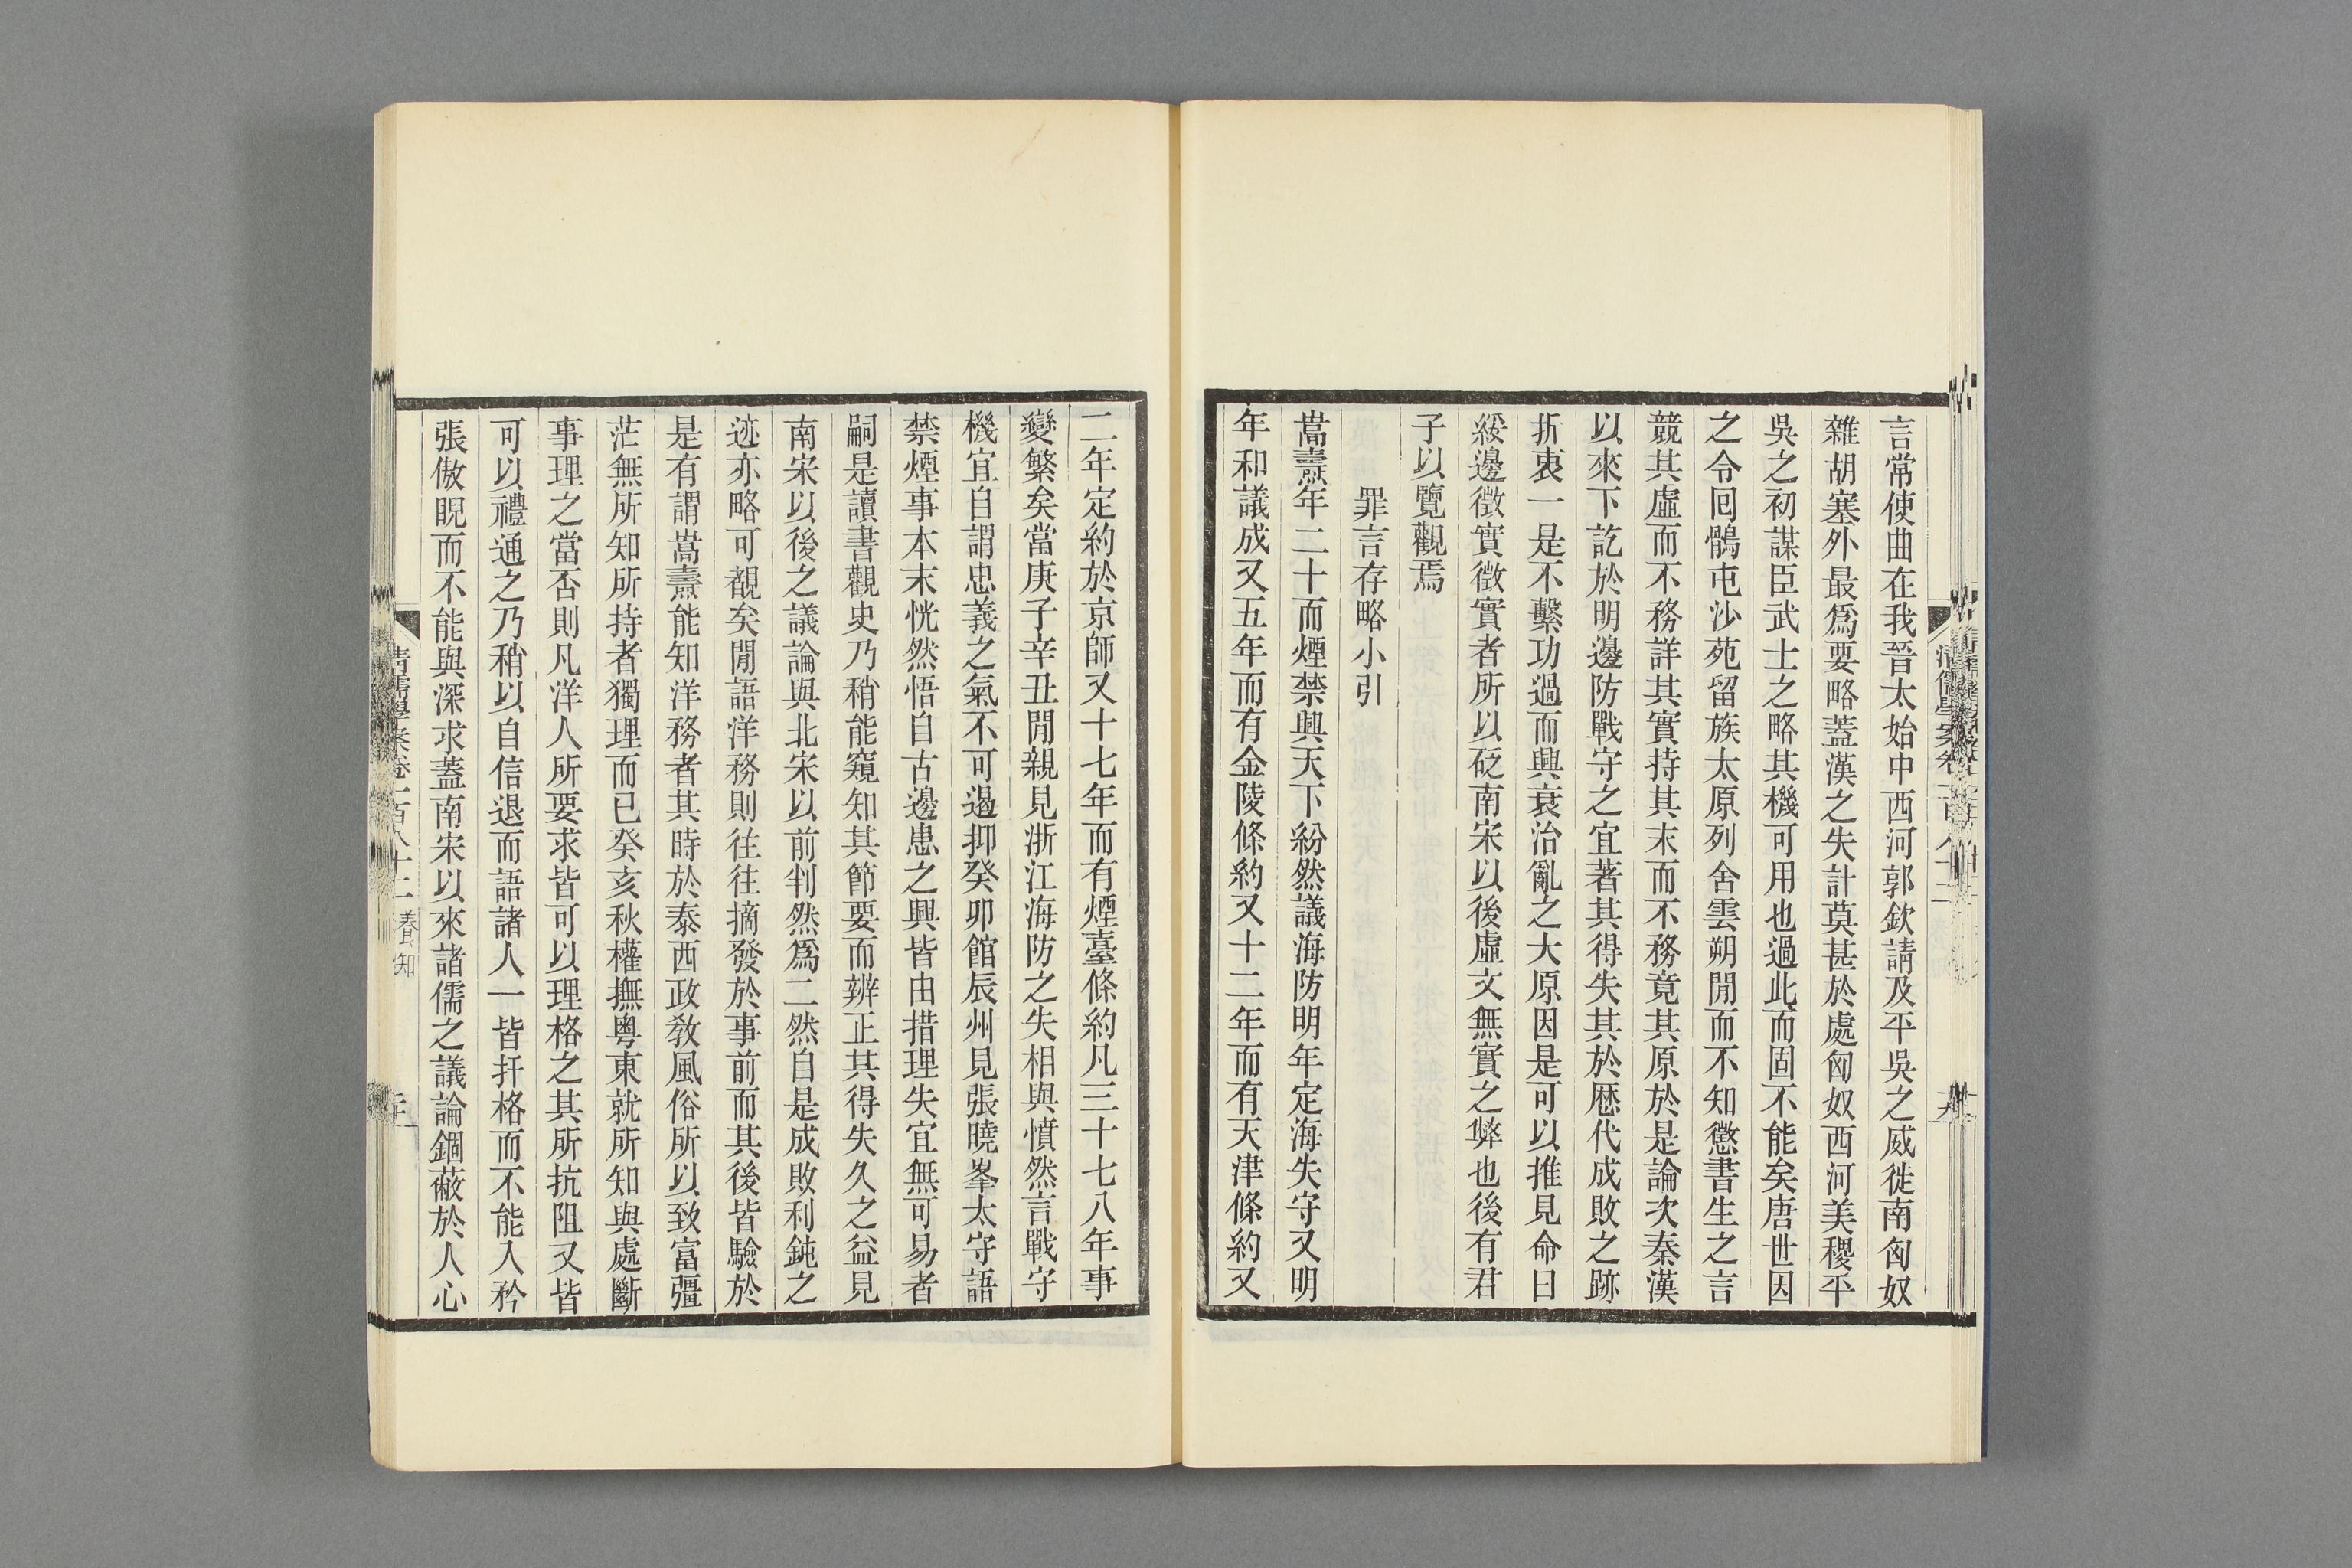 言常使曲在我晉太始中西河郭欽請及平吳之威徙南匈奴
雜胡塞外最爲要略蓋漢之失計莫甚於處匈奴西河美稷平
吳之初謀臣武士之略其機可用也過此而固不能矣唐世因
之令回鶻屯沙苑留族太原列舍雲朔閒而不知懲書生之言
競其虛而不務詳其實持其末而不務竟其原於是論次秦漢
以來下訖於明邊防戰守之宜著其得失其於厯代成敗之跡
折衷一是不繫功過而興衰治亂之大原因是可以推見命曰
綏邊徵實徵實者所以砭南宋以後虛文無實之弊也後有君
子以覽觀焉
罪言存略小引
嵩燾年二十而煙禁興天下紛然議海防明年定海失守又明
年和議成又五年而有金陵條約又十二年而有天津條約又
二年定約於京師又十七年而有煙臺條約凡三十七八年事
變繁矣當庚子辛丑閒親見浙江海防之失相與憤然言戰守
機宜自謂忠義之氣不可遏抑癸卯館辰州見張曉峯太守語
禁煙事本末恍然悟自古邊患之興皆由措理失宜無可易者
嗣是讀書觀史乃稍能窺知其節要而辨正其得失久之益見
南宋以後之議論與北宋以前判然爲二然自是成敗利鈍之
迹亦略可覩矣閒語洋務則往往摘發於事前而其後皆驗於
是有謂嵩燾能知洋務者其時於泰西政敎風俗所以致富彊
茫無所知所持者獨理而已癸亥秋權撫粵東就所知與處斷
事理之當否則凡洋人所要求皆可以理格之其所抗阻又皆
可以禮通之乃稍以自信退而語諸人一皆扞格而不能入矜
張傲睨而不能與深求蓋南宋以來諸儒之議論錮蔽於人心